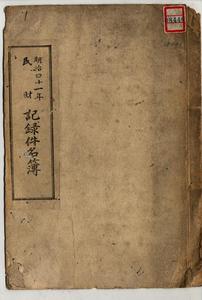 明治四十一年
民財
記録件名簿